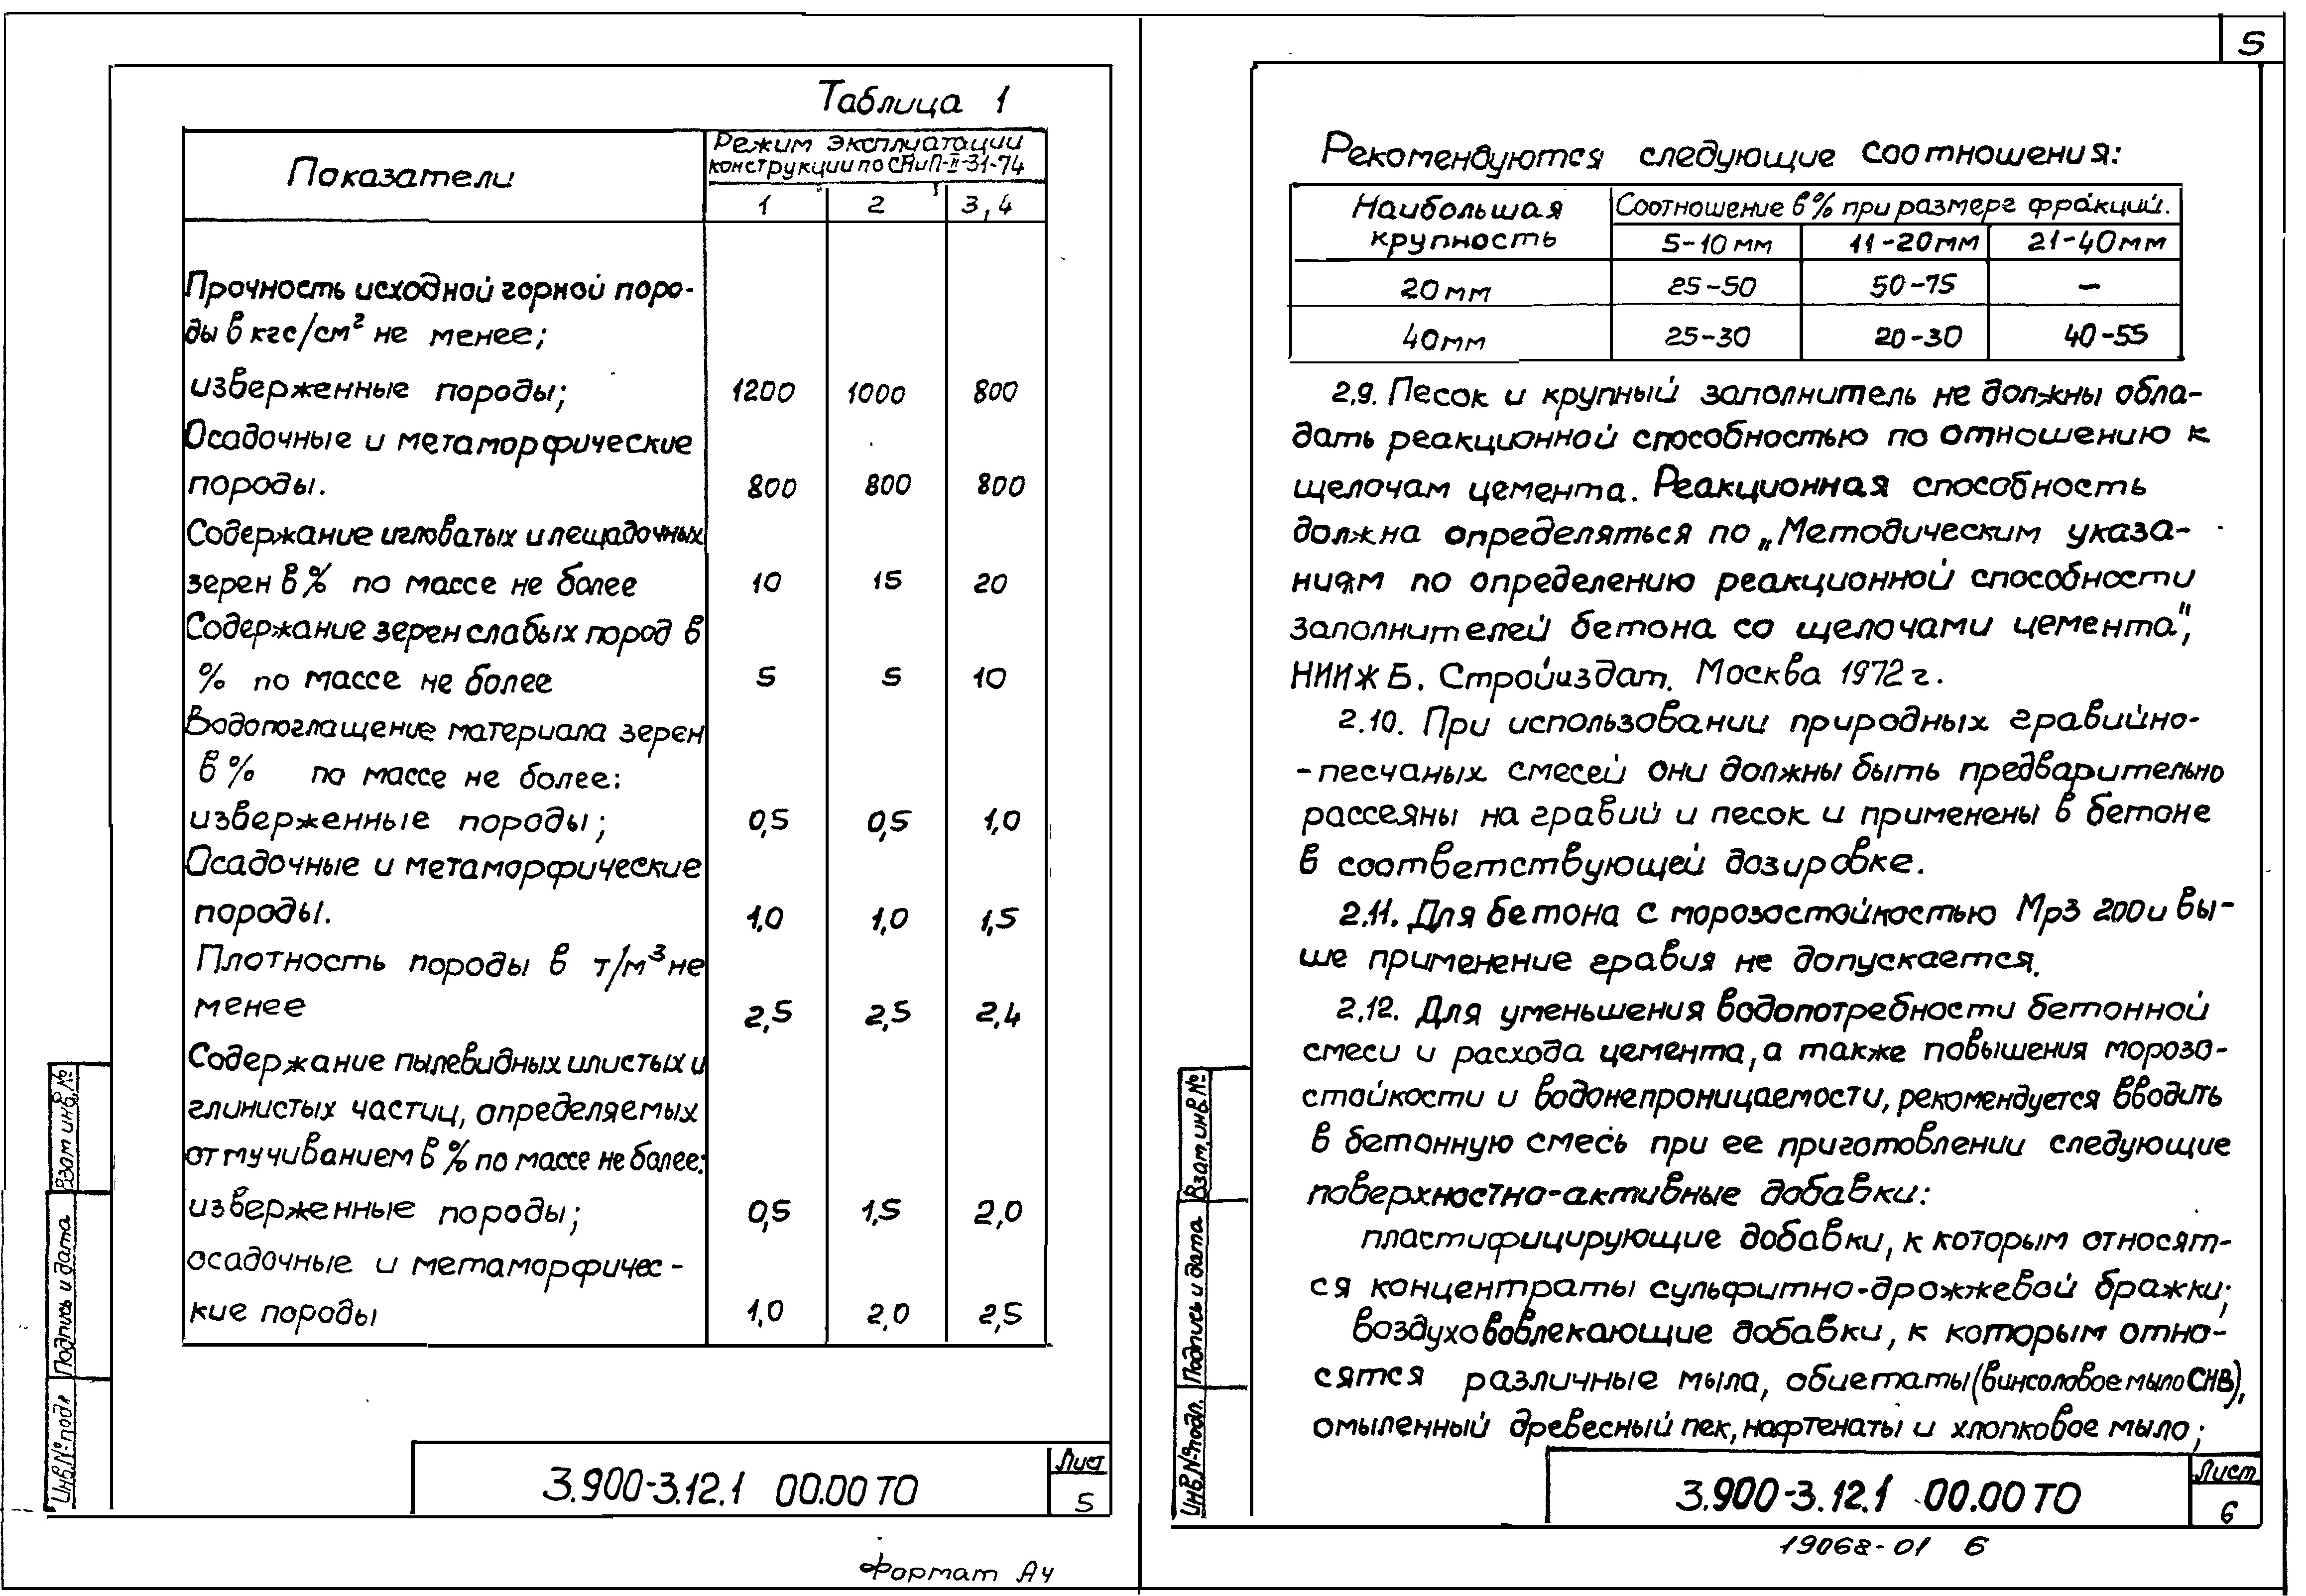 5
Таблица 1
Показатели
Режим эксплуатации
конструкции по СНиП-II-31-74
1 2 3,4
Прочность исходной горной поро-
ды в кгс/см² не менее;
изверженные породы; 1200 1000 800
Осадочные и метаморфические
породы. 800 800 800
Содержание игловатых и лещадочных
зерен в % по массе не более 10 15 20
Содержание зерен слабых пород в
% по массе не более 5 5 10
Водопоглащение материала зерен
в % по массе не более:
изверженные породы; 0,5 0,5 1,0
Осадочные и метаморфические
породы. 1,0 1,0 1,5
Плотность породы в т/м³ не
менее 2,5 2,5 2,4
Содержание пылевидных илистых и
глинистых частиц, определяемых
отмучиванием в % по массе не более:
изверженные породы; 0,5 1,5 2,0
осадочные и метаморфичес-
кие породы 1,0 2,0 2,5
Взам инв.№
Подпись и дата
Инв.№ подл
3.900-3.12.1 00.00 ТО
Лист
5
Формат А4
Рекомендуются следующие соотношения:
Наибольшая
крупность
Соотношение в % при размере фракций.
5-10 мм 11-20 мм 21-40 мм
20 мм 25-50 50-75 —
40 мм 25-30 20-30 40-55
2.9. Песок и крупный заполнитель не должны обла-
дать реакционной способностью по отношению к
щелочам цемента. Реакционная способность
должна определяться по „Методическим указа-
ниям по определению реакционной способности
заполнителей бетона со щелочами цемента",
НИИЖБ. Стройиздат. Москва 1972 г.
2.10. При использовании природных гравийно-
-песчаных смесей они должны быть предварительно
рассеяны на гравий и песок и применены в бетоне
в соответствующей дозировке.
2.11. Для бетона с морозостойкостью Мрз 200 и вы-
ше применение гравия не допускается.
2.12. Для уменьшения водопотребности бетонной
смеси и расхода цемента, а также повышения морозо-
стойкости и водонепроницаемости, рекомендуется вводить
в бетонную смесь при ее приготовлении следующие
поверхностно-активные добавки:
пластифицирующие добавки, к которым относят-
ся концентраты сульфитно-дрожжевой бражки;
воздухововлекающие добавки, к которым отно-
сятся различные мыла, абиетаты (винсоловое мыло СНВ),
омыленный древесный пек, нафтенаты и хлопковое мыло;
Взам.инв.№
Подпись и дата
Инв.№ подл.
3.900-3.12.1 00.00 ТО
Лист
6
19068-01 6